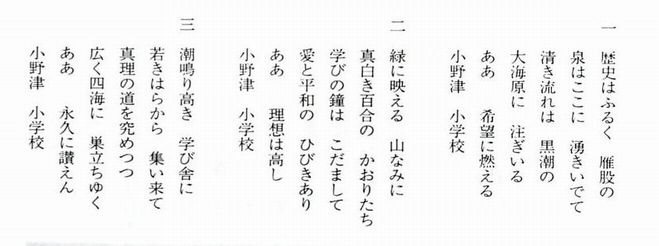 一　歴史はふるく　雁股の
泉はここに　湧きいでて
清き流れは　黒潮の
大海原に　注ぎいる
ああ　希望に燃える
小野津　小学校
二　緑に映える　山なみに
真白き百合の　かおりたち
学びの鐘は　こだまして
愛と平和の　ひびきあり
ああ　理想は高し
小野津　小学校
三　潮鳴り高き　学び舎に
若きはらから　集い来て
真理の道を究めつつ
広く四海に　巣立ちゆく
ああ　永久に讃えん
小野津　小学校